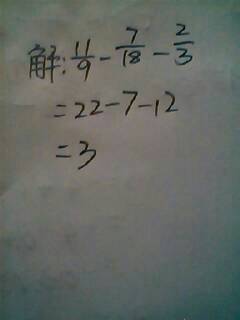 解: 11/9 - 7/18 - 2/3
= 22 - 7 - 12
= 3